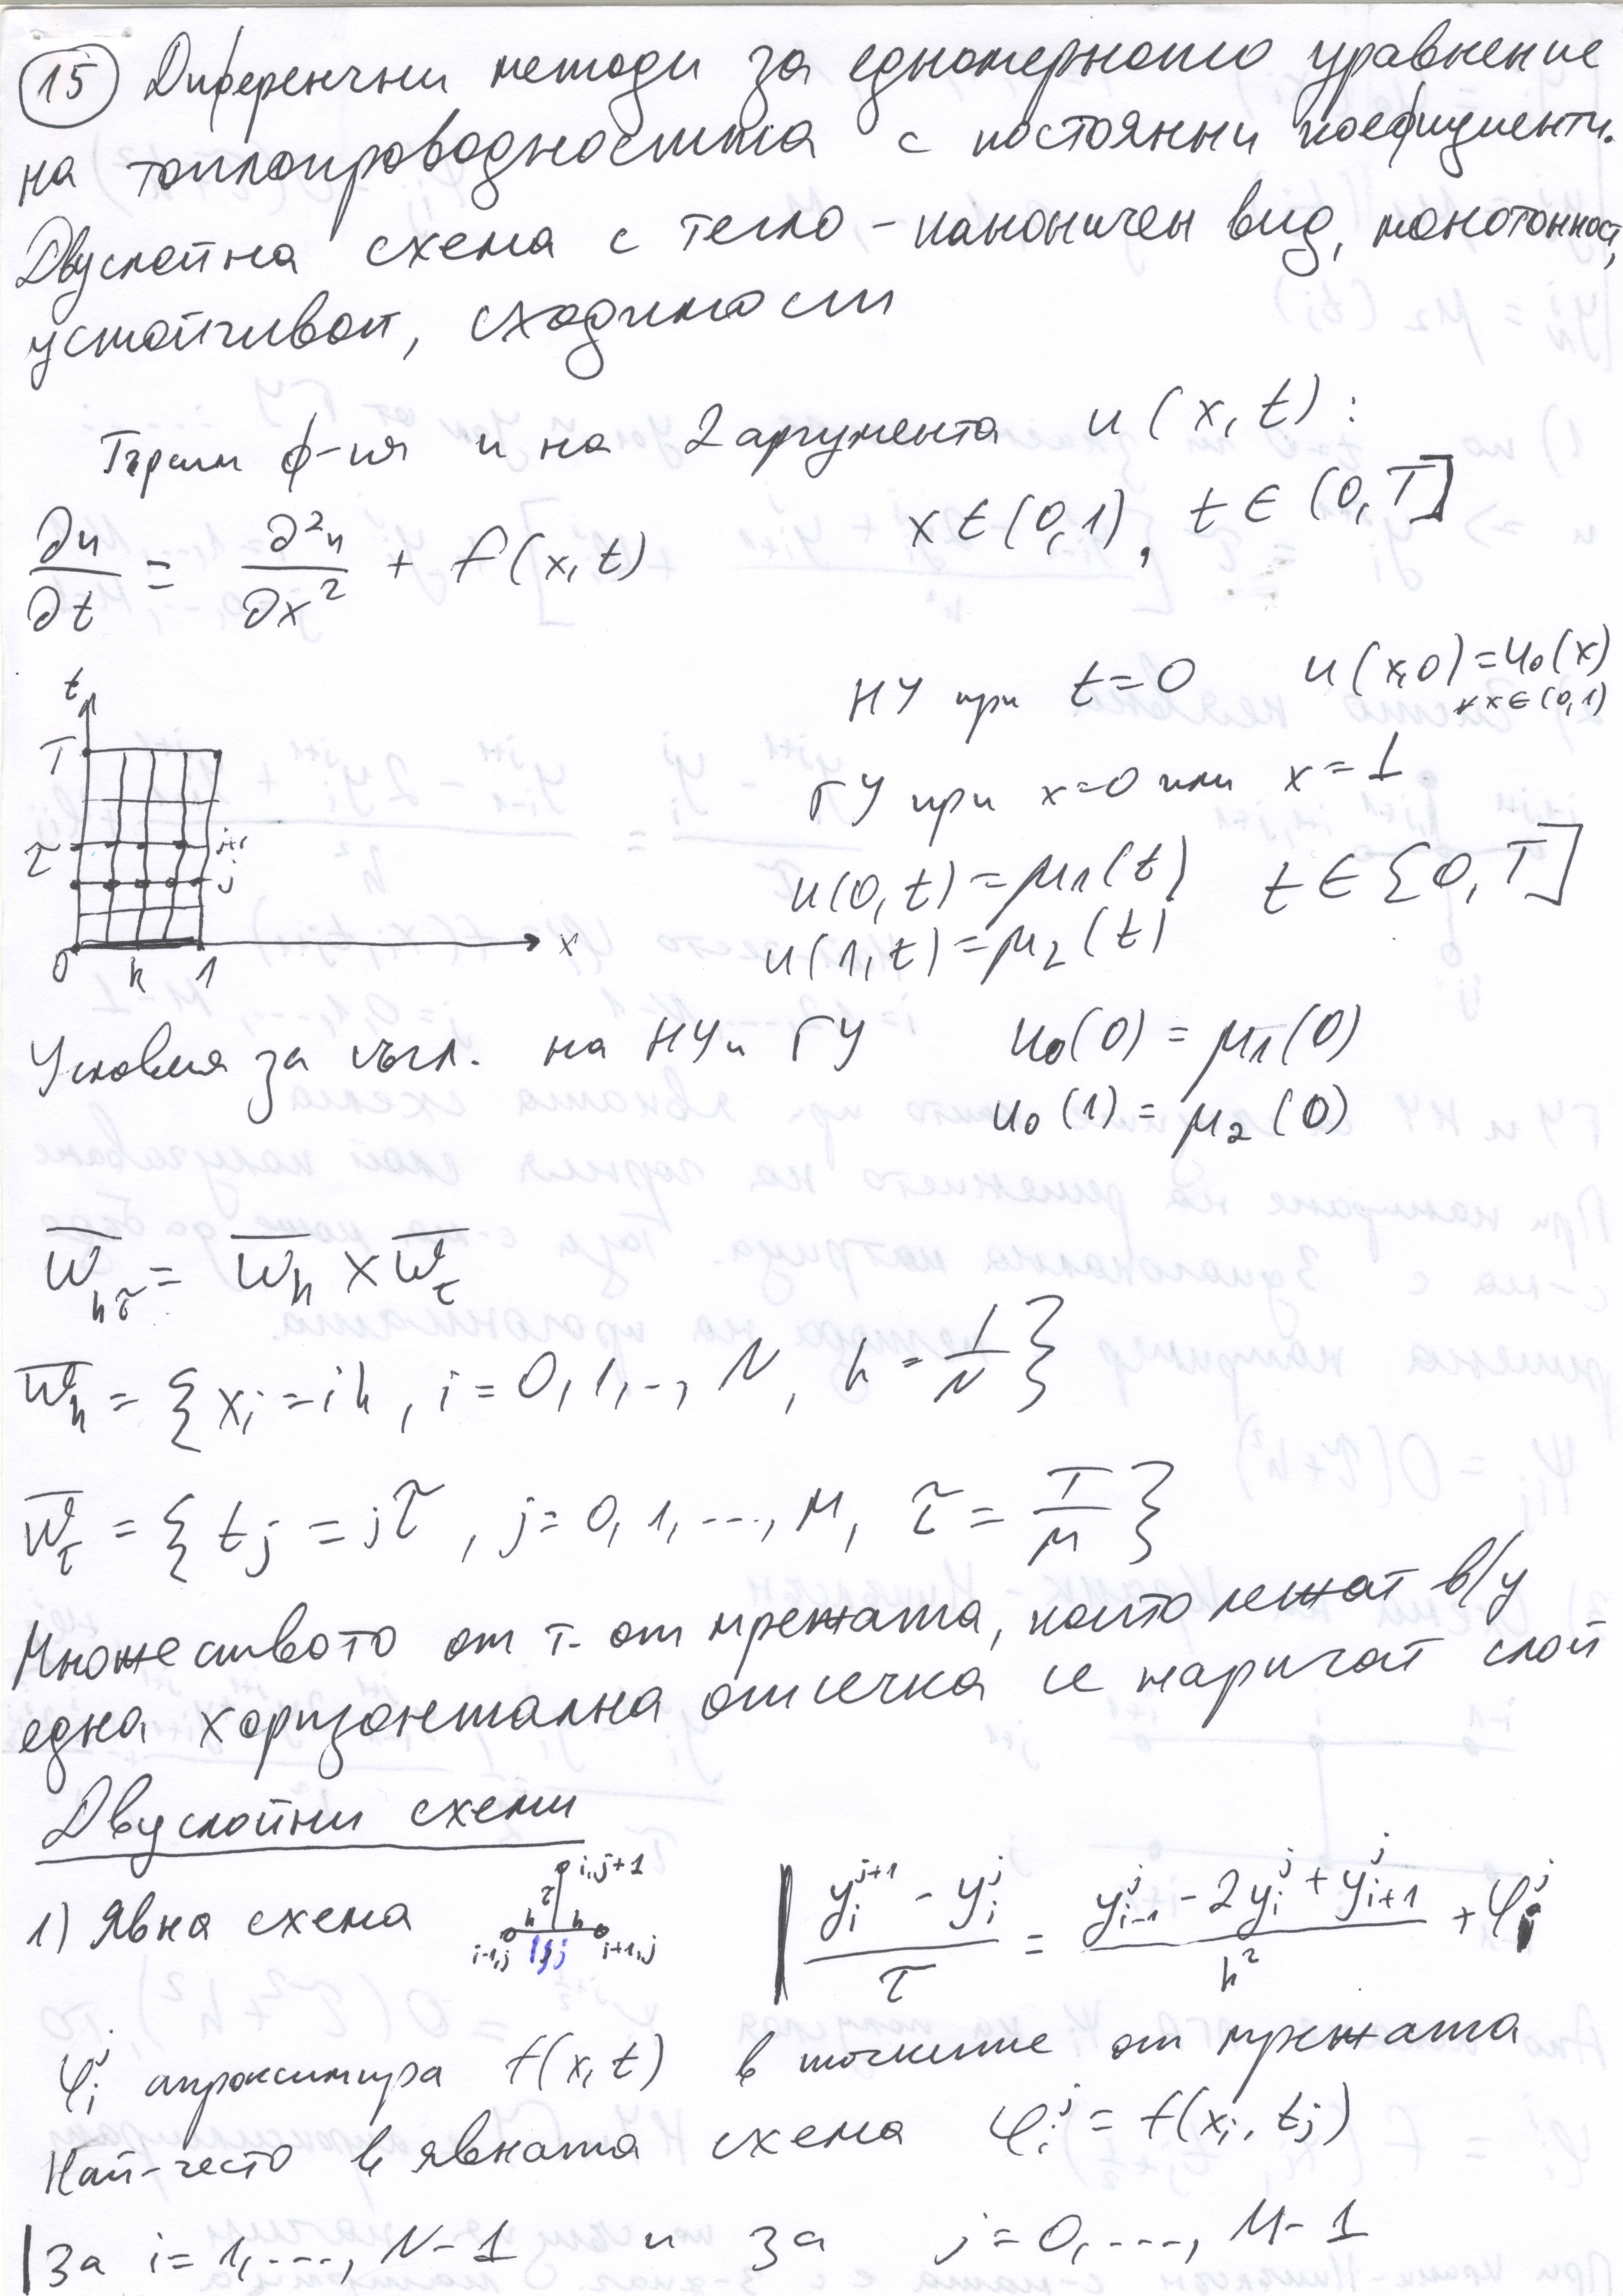 15 Диференчни методи за едномерното уравнение
на топлопроводността с постоянни коефициенти.
Двуслойна схема с тегло - каноничен вид, монотонност,
устойчивост, сходимост
Търсим ф-ия u на 2 аргумента u(x,t):
∂u/∂t = ∂²u/∂x² + f(x,t)    x∈(0,1), t∈(0,T]
НУ при t=0    u(x,0)=u₀(x)
∀x∈(0,1)
ГУ при x=0 или x=1
u(0,t)=μ₁(t)    t∈{0,T]
u(1,t)=μ₂(t)
t
T
τ j+1
j
0 h 1 x
Условия за съгл. на НУ и ГУ    u₀(0)=μ₁(0)
u₀(1)=μ₂(0)
w̅_hτ = w̅_h × w̅_τ
w̅_h = {x_i=ih, i=0,1,..,N, h=1/N}
w̅_τ = {t_j=jτ, j=0,1,...,M, τ=T/M}
Множеството от т. от мрежата, които лежат в/у
една хоризонтална отсечка се наричат слой
Двуслойни схеми
1) Явна схема    i,j+1 τ h h i-1,j i,j i+1,j    (y_i^{j+1} - y_i^j)/τ = (y_{i-1}^j - 2y_i^j + y_{i+1}^j)/h² + φ_i^j
φ_i^j апроксимира f(x,t) в точките от мрежата
Най-често в явната схема φ_i^j = f(x_i,t_j)
За i=1,...,N-1 и за j=0,...,M-1